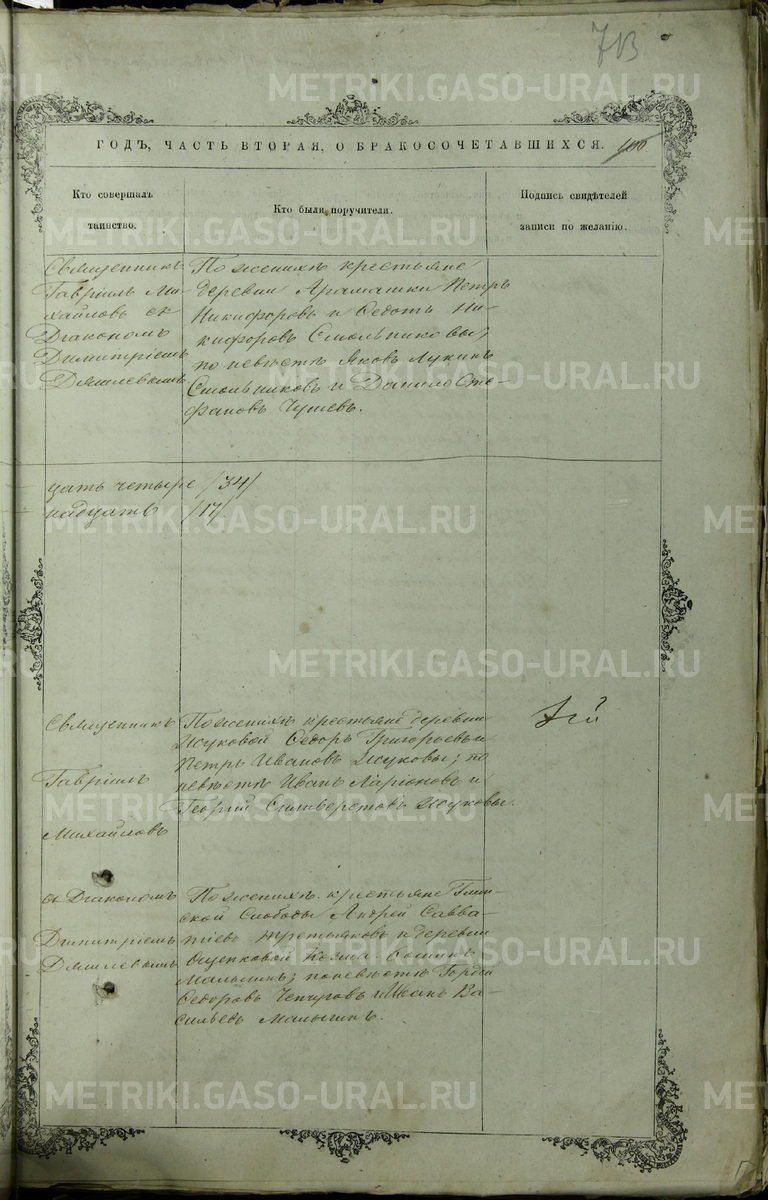 713
ГОДЪ, ЧАСТЬ ВТОРАЯ, О БРАКОСОЧЕТАВШИХСЯ. 100
Кто совершалъ таинство.
Кто были поручители.
Подпись свидѣтелей записи по желанію.
Священникъ
Гавріилъ Ми-
хайловъ съ
Діакономъ
Димитріемъ
По женихѣ крестьяне
деревни Арамашки Петръ
Никифоровъ и Ѳедотъ Ни-
кифоровъ Смольниковы,
по невѣстѣ Яковъ Лукинъ
Смольниковъ и Данило Сте-
фановъ Чушевъ.
цать четыре /34/
надцать /17/
Священникъ
Гавріилъ
Михайловъ
По женихѣ крестьяне деревни
Жуковой Ѳедоръ Григорьевъ и
Петръ Ивановъ Жуковы; по
невѣстѣ Иванъ Ларіоновъ и
Георгій Сильверстовъ Жуковы.
съ Діакономъ
Димитріемъ
По женихѣ крестьяне Глин-
ской Слободы Андрей Савва-
тіевъ и деревни
Ощепковой
Малыгинъ; по невѣстѣ Гордей
Ѳедоровъ Чепчуговъ и Иванъ Ва-
сильевъ Малыгинъ.
METRIKI.GASO-URAL.RU